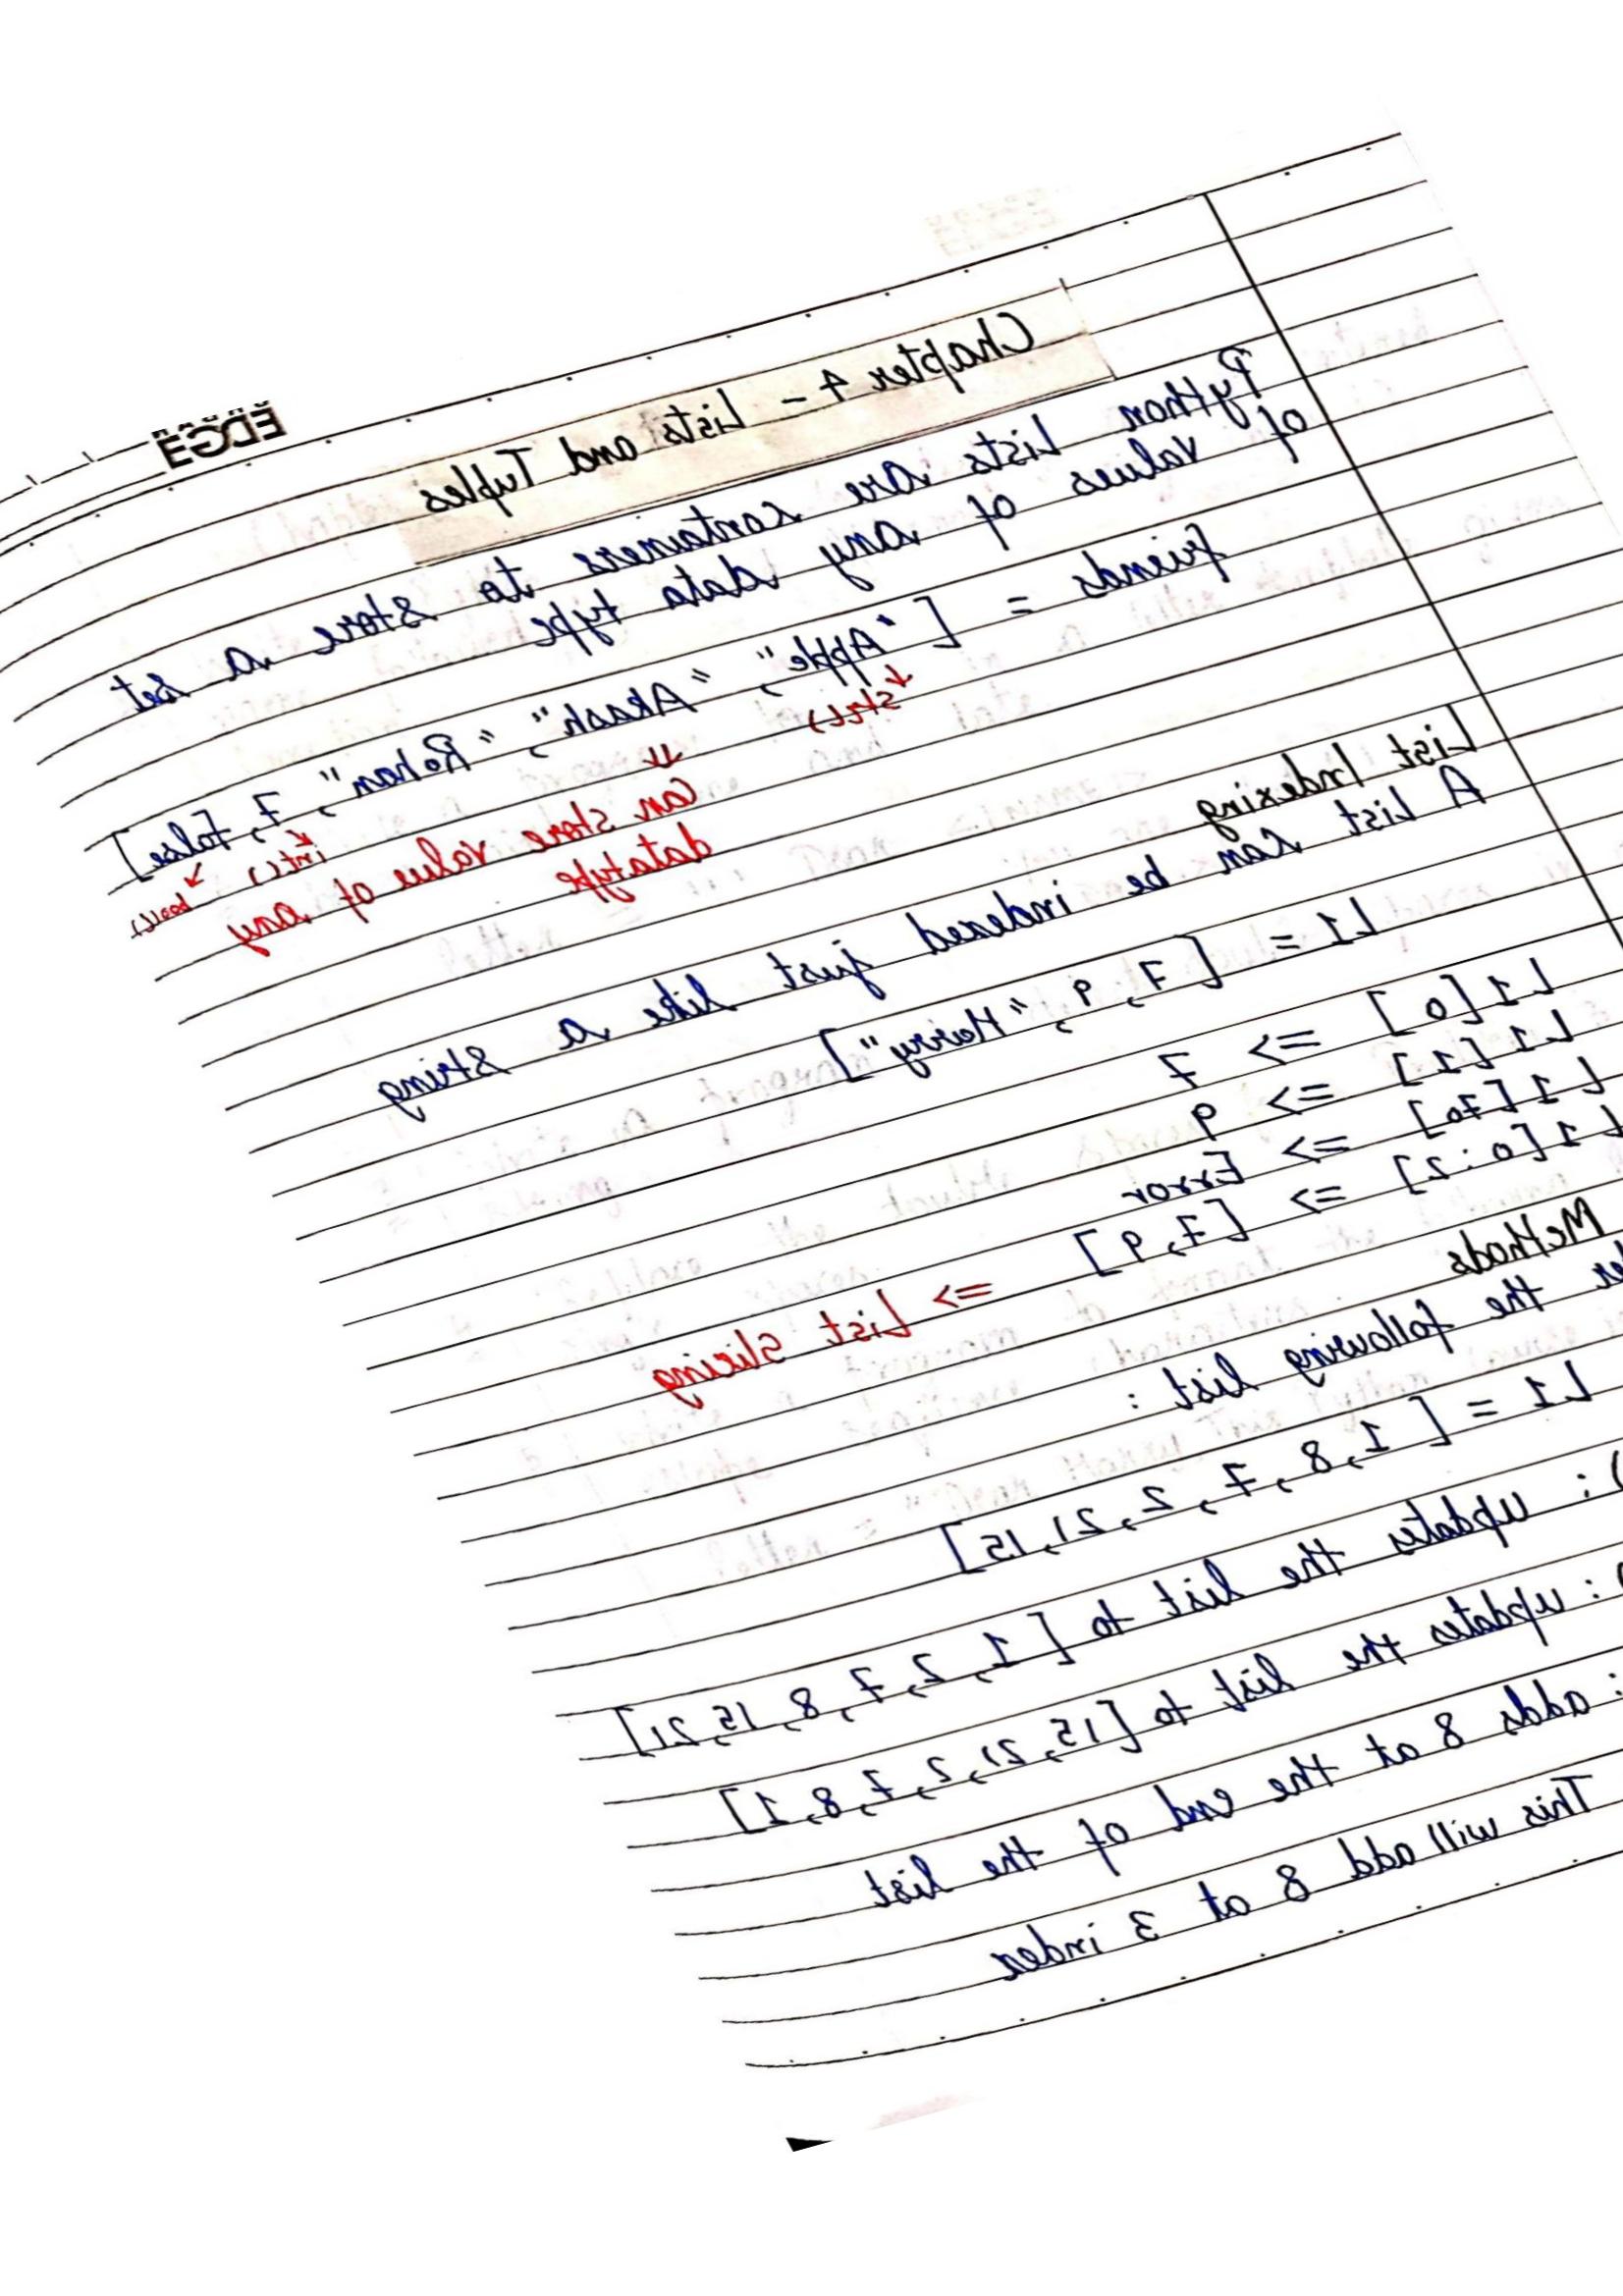 EDGE
Chapter 4 - Lists and Tuples
Python Lists are containers to store a set
of values of any data type
friends = [ "Apple", "Akash", "Rohan", 7, false]
str()
int()
bool()
⇓
Can store value of any
datatype
List Indexing
A List can be indexed just like a string
L1 = [ 7, 9, "Harry"]
L1[0] => 7
L1[1] => 9
L1[70] => Error
L1[0:2] => [7,9] => List slicing
Methods
the following list :
L1 = [ 1, 8, 7, 2, 21, 15]
) : updates the list to [ 1, 2, 7, 8, 15, 21]
) : updates the list to [15, 21, 2, 7, 8, 1]
: adds 8 at the end of the list
This will add 8 at 3 index